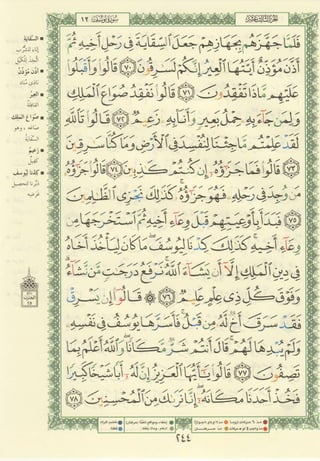 سورة يوسف ١٢
الجزء الثالث عشر
فَلَمَّا جَهَّزَهُم بِجَهَازِهِمْ جَعَلَ ٱلسِّقَايَةَ فِى رَحْلِ أَخِيهِ ثُمَّ
أَذَّنَ مُؤَذِّنٌ أَيَّتُهَا ٱلْعِيرُ إِنَّكُمْ لَسَٰرِقُونَ ﴿٧٠﴾ قَالُوا۟ وَأَقْبَلُوا۟
عَلَيْهِم مَّاذَا تَفْقِدُونَ ﴿٧١﴾ قَالُوا۟ نَفْقِدُ صُوَاعَ ٱلْمَلِكِ
وَلِمَن جَآءَ بِهِۦ حِمْلُ بَعِيرٍ وَأَنَا۠ بِهِۦ زَعِيمٌ ﴿٧٢﴾ قَالُوا۟ تَٱللَّهِ
لَقَدْ عَلِمْتُم مَّا جِئْنَا لِنُفْسِدَ فِى ٱلْأَرْضِ وَمَا كُنَّا سَٰرِقِينَ
﴿٧٣﴾ قَالُوا۟ فَمَا جَزَٰٓؤُهُۥٓ إِن كُنتُمْ كَٰذِبِينَ ﴿٧٤﴾ قَالُوا۟ جَزَٰٓؤُهُۥ
مَن وُجِدَ فِى رَحْلِهِۦ فَهُوَ جَزَٰٓؤُهُۥ كَذَٰلِكَ نَجْزِى ٱلظَّٰلِمِينَ
﴿٧٥﴾ فَبَدَأَ بِأَوْعِيَتِهِمْ قَبْلَ وِعَآءِ أَخِيهِ ثُمَّ ٱسْتَخْرَجَهَا مِن
وِعَآءِ أَخِيهِ كَذَٰلِكَ كِدْنَا لِيُوسُفَ مَا كَانَ لِيَأْخُذَ أَخَاهُ
فِى دِينِ ٱلْمَلِكِ إِلَّآ أَن يَشَآءَ ٱللَّهُ نَرْفَعُ دَرَجَٰتٍ مَّن نَّشَآءُ
وَفَوْقَ كُلِّ ذِى عِلْمٍ عَلِيمٌ ﴿٧٦﴾ ۞ قَالُوٓا۟ إِن يَسْرِقْ
فَقَدْ سَرَقَ أَخٌ لَّهُۥ مِن قَبْلُ فَأَسَرَّهَا يُوسُفُ فِى نَفْسِهِۦ
وَلَمْ يُبْدِهَا لَهُمْ قَالَ أَنتُمْ شَرٌّ مَّكَانًا وَٱللَّهُ أَعْلَمُ بِمَا
تَصِفُونَ ﴿٧٧﴾ قَالُوا۟ يَٰٓأَيُّهَا ٱلْعَزِيزُ إِنَّ لَهُۥٓ أَبًا شَيْخًا كَبِيرًا
فَخُذْ أَحَدَنَا مَكَانَهُۥٓ إِنَّا نَرَىٰكَ مِنَ ٱلْمُحْسِنِينَ ﴿٧٨﴾
السقاية
أذن مؤذن
العير
القافلة
صواع الملك
زعيم
كفيل
كدنا ليوسف
٢٤٤